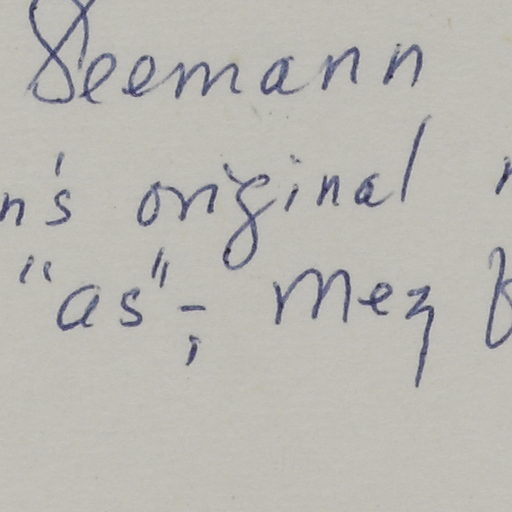 Seemann
n's original
"as"-; Mez